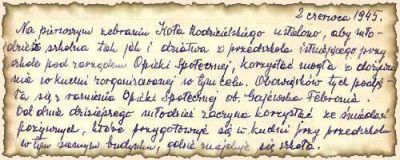 2 czerwca 1945.
Na pierwszym zebraniu Koła Rodzicielskiego ustalono, aby mło-
dzież szkolna tak jak i dziatwa z przedszkola istniejącego przy
szkole pod zarządem Opieki Społecznej, korzystać mogła z dożywia
nia w kuchni zorganizowanej w tym celu. Obowiązków tych podję-
ła się z ramienia Opieki Społecznej ob. Gajewska Febronia.
Od dnia dzisiejszego młodzież zaczyna korzystać ze śniadań
pożywnych, które przygotowuje się w kuchni przy przedszkolu
w tym samym budynku, gdzie znajduje się szkoła.